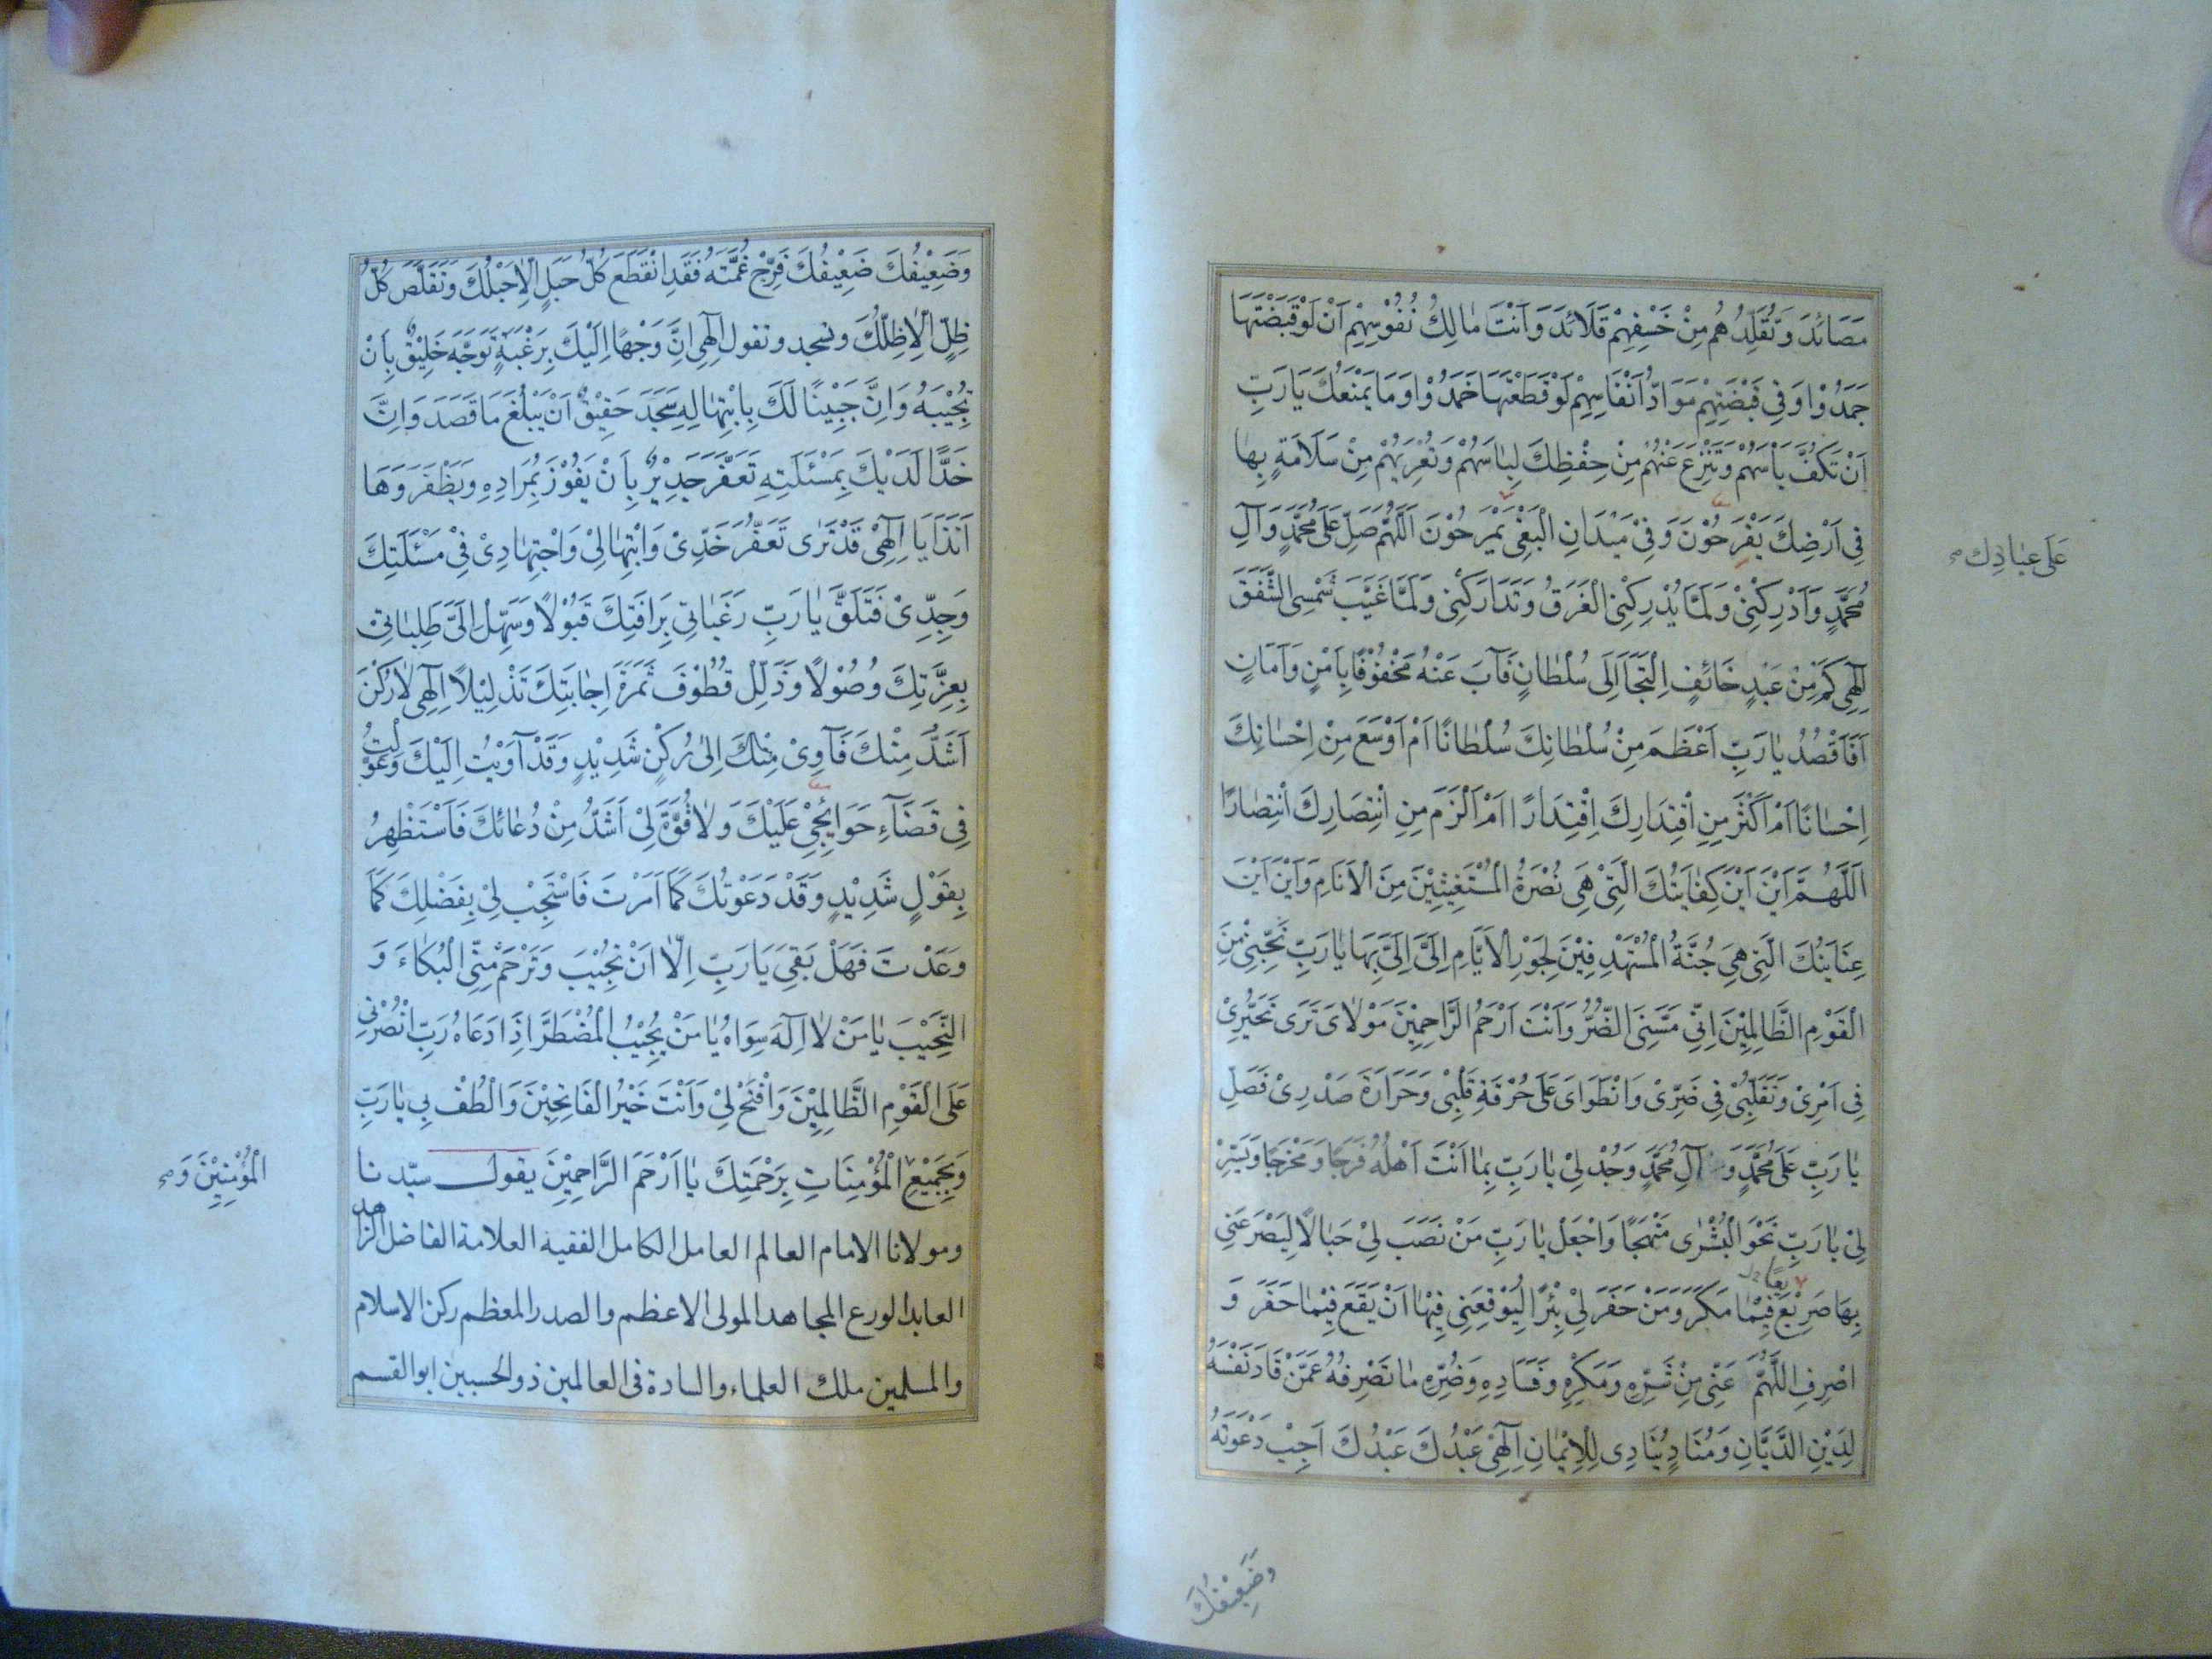 مَصَائِدَ وَتُقَلِّدُهُم مِنْ خَسْفِهِمْ قَلَائِدَ وَاَنْتَ مَالِكُ نُفُوْسِهِمْ اَنْ لَوْ قَبَضْتَهَا
جَمَدُوْا وَفِي قَبْضَتِهِمْ مَوَادُّ اَنْفَاسِهِمْ لَوْ قَطَعْتَهَا خَمَدُوْا وَمَا يَمْنَعُكَ يَا رَبِّ
اَنْ تَكُفَّ بَأْسَهُمْ وَتَنْزِعَ عَنْهُمْ مِنْ حِفْظِكَ لِبَاسَهُمْ وَتُعْرِيَهُمْ مِنْ سَلَامَةٍ بِهَا
فِي اَرْضِكَ يَفْرَحُوْنَ وَفِيْ مَيْدَانِ الْبَغْيِ يَمْرَحُوْنَ اَللَّهُمَّ صَلِّ عَلَى مُحَمَّدٍ وَآلِ
عَلَى عِبَادِكَ
مُحَمَّدٍ وَاَدْرِكْنِيْ وَلَمَّا يُدْرِكْنِي الْغَرَقُ وَتَدَارَكْنِي وَلَمَّا غَيَّبَ شَمْسِي الشَّفَقُ
اِلَهِي كَمْ مِنْ عَبْدٍ خَائِفٍ اِلْتَجَأَ اِلَى سُلْطَانٍ فَآبَ عَنْهُ مَحْفُوْفًا بِاَمْنٍ وَاَمَانٍ
اَفَاَقْصُدُ يَا رَبِّ اَعْظَمَ مِنْ سُلْطَانِكَ سُلْطَانًا اَمْ اَوْسَعَ مِنْ اِحْسَانِكَ
اِحْسَانًا اَمْ اَكْثَرَ مِنِ اقْتِدَارِكَ اِقْتِدَارًا اَمْ اَلْزَمَ مِنِ انْتِصَارِكَ انْتِصَارًا
اَللَّهُمَّ اَيْنَ اَيْنَ كِفَايَتُكَ الَّتِيْ هِيَ نُصْرَةُ الْمُسْتَغِيْثِيْنَ مِنَ الْاَنَامِ وَاَيْنَ اَيْنَ
عِنَايَتُكَ الَّتِي هِيَ جُنَّةُ الْمُسْتَهْدَفِيْنَ لِجَوْرِ الْاَيَّامِ اِلَيَّ اِلَيَّ بِهَا يَا رَبِّ نَجِّنِيْ مِنَ
الْقَوْمِ الظَّالِمِيْنَ اِنِّي مَسَّنِيَ الضُّرُّ وَاَنْتَ اَرْحَمُ الرَّاحِمِيْنَ مَوْلَايَ تَرَى تَحَيُّرِيْ
فِي اَمْرِيْ وَتَقَلُّبِيْ فِي ضَرِّيْ وَانْطَوَايَ عَلَى حُرْقَةِ قَلْبِيْ وَحَرَارَةِ صَدْرِيْ فَصَلِّ
يَا رَبِّ عَلَى مُحَمَّدٍ وَ آلِ مُحَمَّدٍ وَجُدْ لِيْ يَا رَبِّ بِمَا اَنْتَ اَهْلُهُ فَرَجًا وَمَخْرَجًا وَيَسِّرْ
لِيْ يَا رَبِّ نَحْوَ الْبُشْرَى مَنْهَجًا وَاجْعَلْ يَا رَبِّ مَنْ نَصَبَ لِيْ حَبَالًا لِيَصْرَعَنِي
بِهَا صَرِيْعَ فِيْمَا مَكَرَ وَمَنْ حَفَرَ لِيْ بِئْرًا لِيُوْقِعَنِي فِيْهَا اَنْ يَقَعَ فِيْمَا حَفَرَ وَ
اصْرِفِ اللَّهُمَّ عَنِّي مِنْ شَرِّهِ وَمَكْرِهِ وَفَسَادِهِ وَضُرِّهِ مَا تَصْرِفُهُ عَمَّنْ قَادَ نَفْسَهُ
لِدَيْنِ الدَّيَّانِ وَمُنَادٍ يُنَادِي لِلْاِيْمَانِ اِلَهِيْ عَبْدُكَ عَبْدُكَ اَجِبْ دَعْوَتَهُ
وَضَعِيْفُكَ
وَضَعِيْفُكَ ضَعِيْفُكَ فَرِّجْ غُمَّتَهُ فَقَدِ انْقَطَعَ كُلُّ حَبْلٍ اِلَّا حَبْلُكَ وَتَقَلَّصَ كُلُّ
ظِلٍّ اِلَّا ظِلُّكَ وتسجد وتقول اِلَهِي اِنَّ وَجْهًا اِلَيْكَ بِرَغْبَةٍ تَوَجَّهَ خَلِيْقٌ بِاَنْ
تُجِيْبَهُ وَاِنَّ جَبِيْنًا لَكَ بِابْتِهَالِهِ سَجَدَ حَقِيْقٌ اَنْ يَبْلُغَ مَا قَصَدَ وَاِنَّ
خَدًّا لَدَيْكَ بِمَسْئَلَتِهِ تَعَفَّرَ جَدِيْرٌ بِاَنْ يَفُوْزَ بِمُرَادِهِ وَيَظْفَرَ وَهَا
اَنَذَا يَا اِلَهِيْ قَدْ تَرَى تَعَفُّرَ خَدِّيْ وَابْتِهَالِيْ وَاجْتِهَادِيْ فِيْ مَسْئَلَتِكَ
وَجِدِّيْ فَتَلَقَّ يَا رَبِّ رَغَبَاتِي بِرَاْفَتِكَ قَبُوْلًا وَسَهِّلْ اِلَيَّ طَلِبَاتِي
بِعِزَّتِكَ وُصُوْلًا وَذَلِّلْ قُطُوْفَ ثَمَرَةِ اِجَابَتِكَ تَذْلِيْلًا اِلَهِي لَا رُكْنَ
اَشَدُّ مِنْكَ فَآوِيْ مِنْكَ اِلَى رُكْنٍ شَدِيْدٍ وَقَدْ آوَيْتُ اِلَيْكَ وَعَوَّلْتُ
فِي قَضَآءِ حَوَائِجِيْ عَلَيْكَ وَلَا قُوَّةَ لِيْ اَشَدُّ مِنْ دُعَائِكَ فَاَسْتَظْهِرُ
بِقَوْلٍ شَدِيْدٍ وَقَدْ دَعَوْتُكَ كَمَا اَمَرْتَ فَاسْتَجِبْ لِيْ بِفَضْلِكَ كَمَا
وَعَدْتَ فَهَلْ بَقِيَ يَا رَبِّ اِلَّا اَنْ تُجِيْبَ وَتَرْحَمَ مِنِّي الْبُكَاءَ وَ
النَّحِيْبَ يَا مَنْ لَا اِلَهَ سِوَاهُ يَا مَنْ يُجِيْبُ الْمُضْطَرَّ اِذَا دَعَاهُ رَبِّ انْصُرْنِي
عَلَى الْقَوْمِ الظَّالِمِيْنَ وَافْتَحْ لِيْ وَاَنْتَ خَيْرُ الْفَاتِحِيْنَ وَالْطُفْ بِي يَا رَبِّ
وَبِجَمِيْعِ الْمُؤْمِنَاتِ بِرَحْمَتِكَ يَا اَرْحَمَ الرَّاحِمِيْنَ يقول سيّدنا
الْمُؤْمِنِيْنَ وَ
ومولانا الامام العالم العامل الكامل الفقيه العلامة الفاضل الزاهد
العابد الورع المجاهد المولى الاعظم والصدر المعظم ركن الاسلام
والمسلمين ملك العلماء والسادة فى العالمين ذو الحسبين ابو القسم